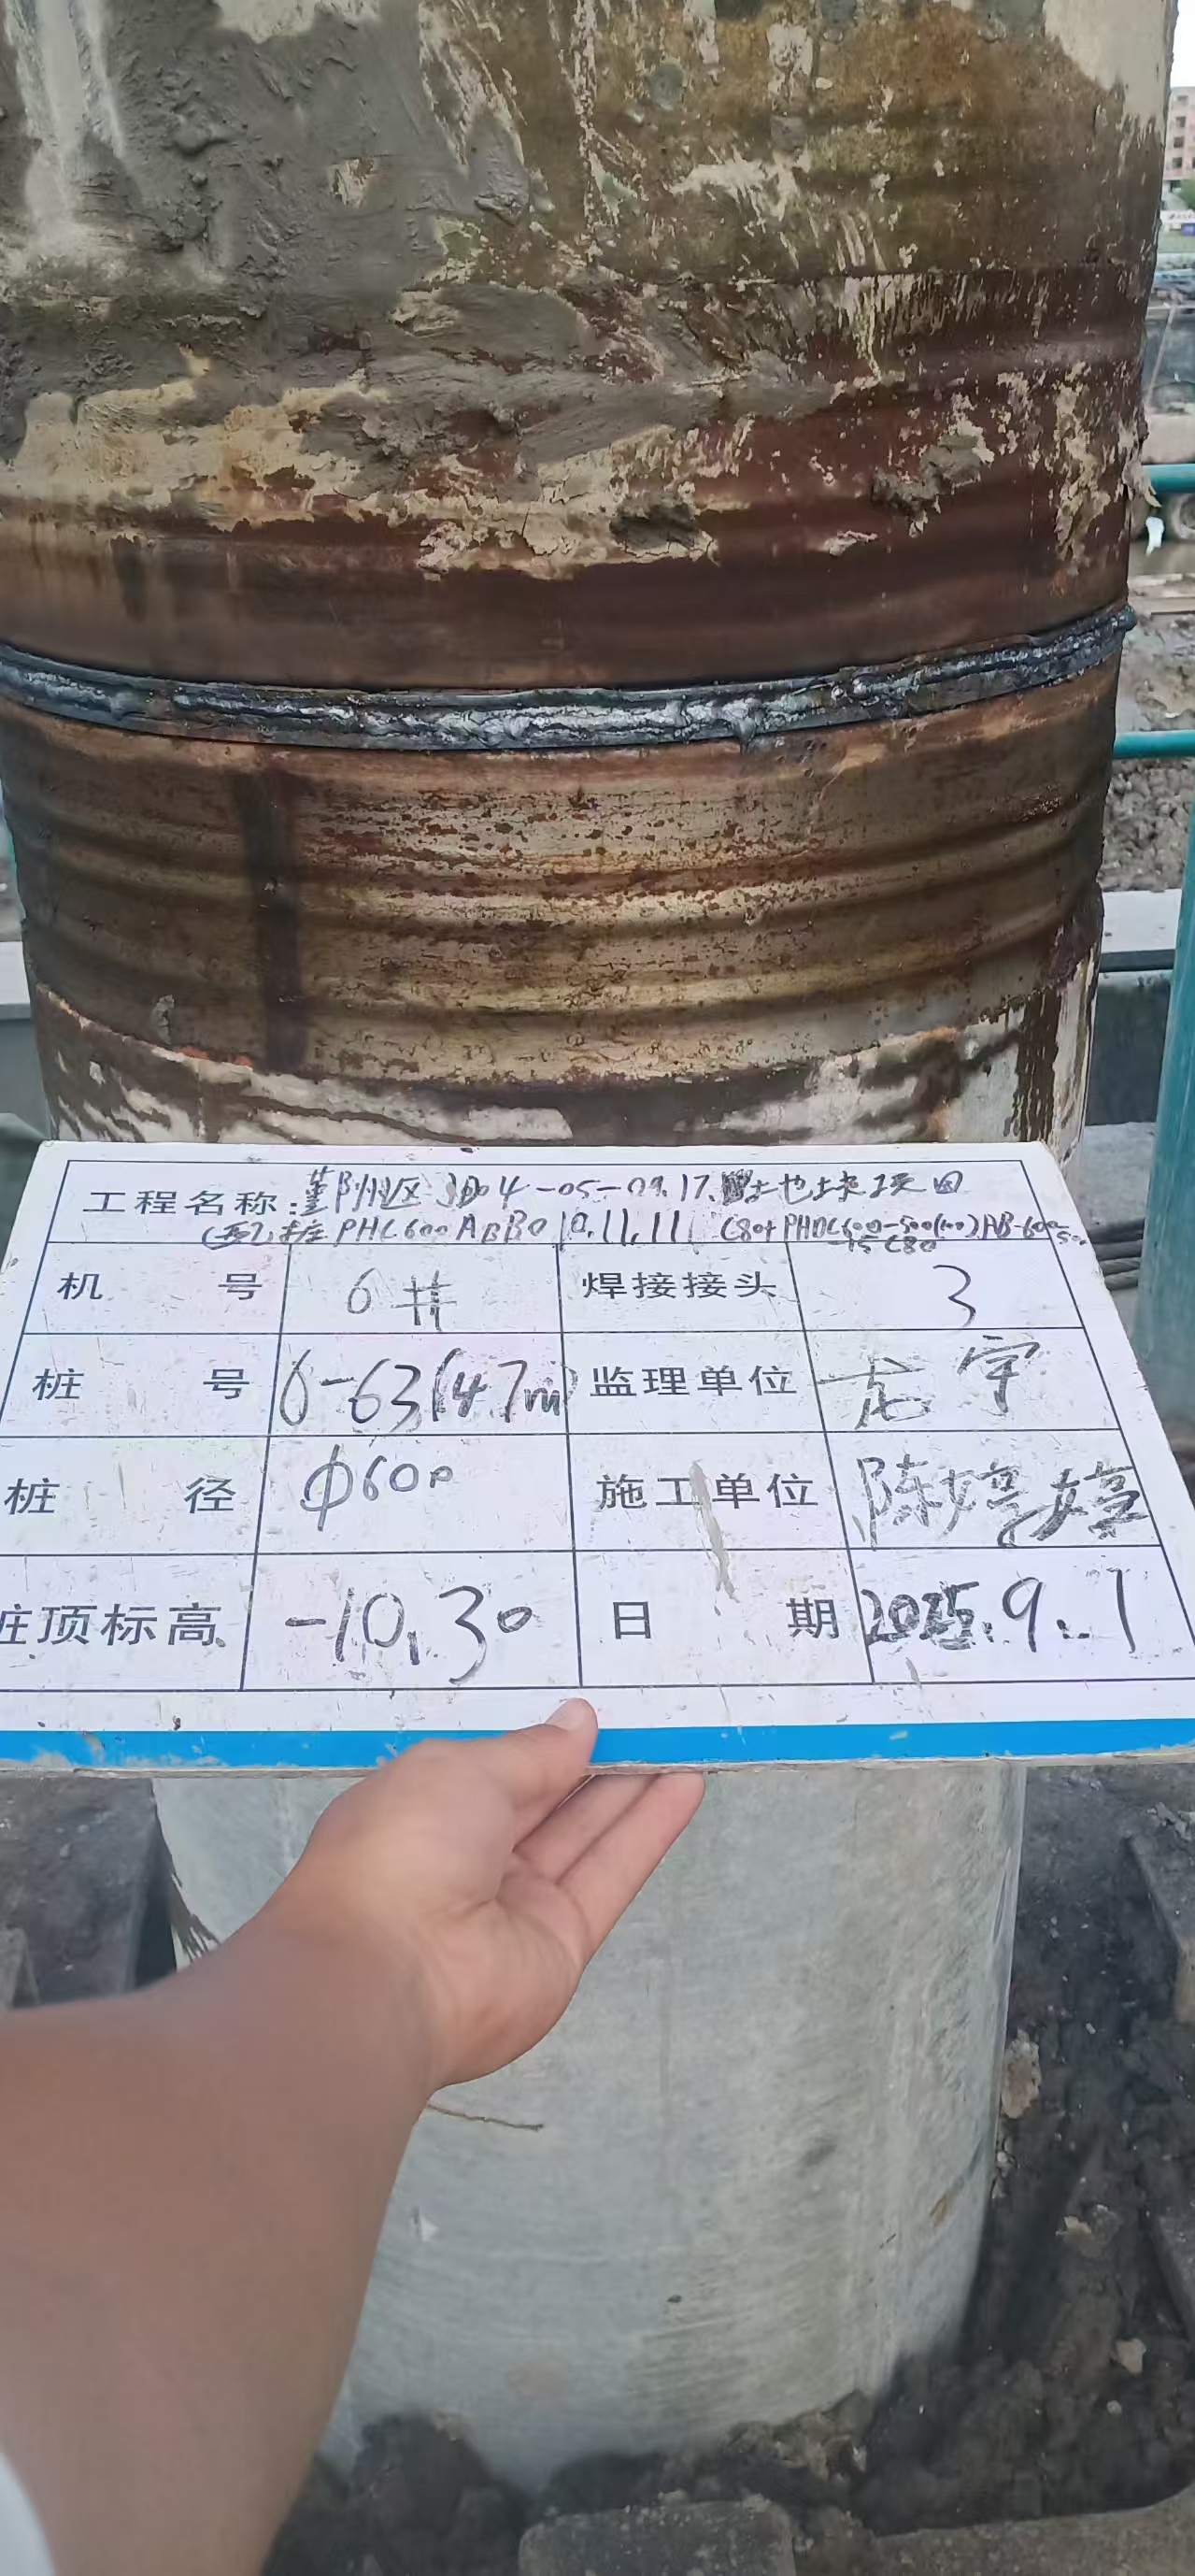 工程名称:鄞州区JD04-05-09.17 地块项目
桩 PHC600AB130 10.11.11 C80+PHDC600-500(100)AB-600/500
-15 C80
机号 6# 焊接接头 3
桩号 6-63(47m) 监理单位 龙宇
桩径 Φ600 施工单位 陈婷婷
桩顶标高 -10.30 日期 2025.9.1